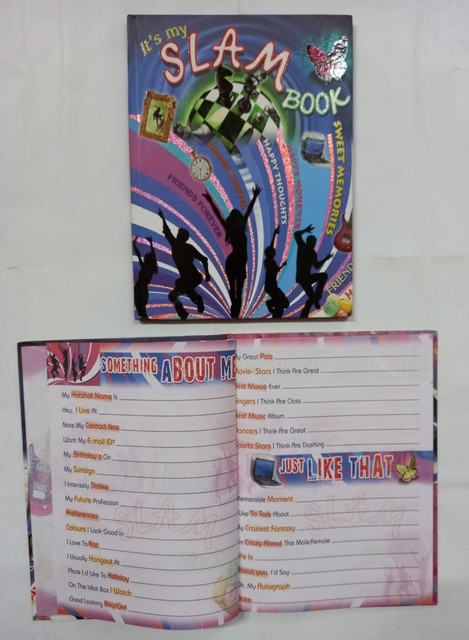 It's my
SLAM
BOOK
SWEET MEMORIES
HAPPY THOUGHTS
FRIENDS FOREVER
FRIEND
SOMETHING ABOUT M
My Hotshot Name Is
Hey, I Live At
Note My Contact Nos
Want My E-mail ID?
My Birthday's On
My Sunsign
I Intensely Dislike
My Future Profession
Preferences
Colours I Look Good In
I Love To Eat
I Usually Hangout At
Place I'd Like To Holiday
On The Idiot Box I Watch
Good Looking Boy/Girl
y Great Pals
ovie- Stars I Think Are Great
est Movie Ever
ingers I Think Are Class
est Music Album
ancers I Think Are Great
ports Stars I Think Are Dashing
JUST LIKE THAT
emorable Moment
Like To Talk About
y Craziest Fantasy
Crazy About This Male/Female
ife Is
bout you, I'd Say
Ok, My Autograph
ate